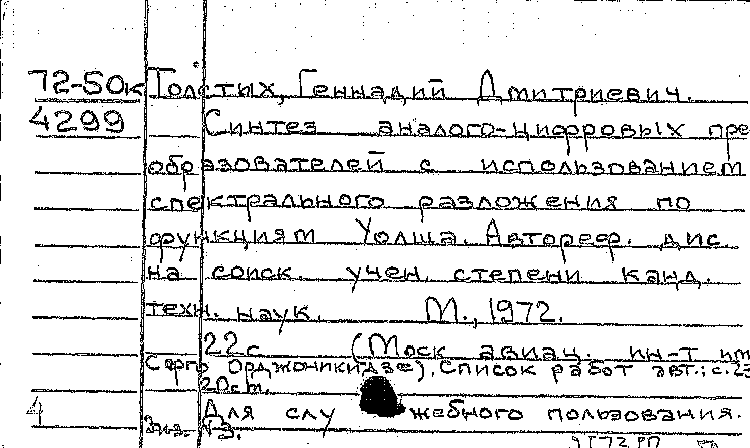 72-50к Толстых, Геннадий Дмитриевич.
4299 Синтез аналого-цифровых пре
образователей с использованием
спектрального разложения по
функциям Уолша. Автореф. дис.
на соиск. учен. степени канд.
техн. наук. М., 1972.
22с (Моск авиац. ин-т им
Серго Орджоникидзе), Список работ авт.: с.
20ст.
4 Для служебного пользования.